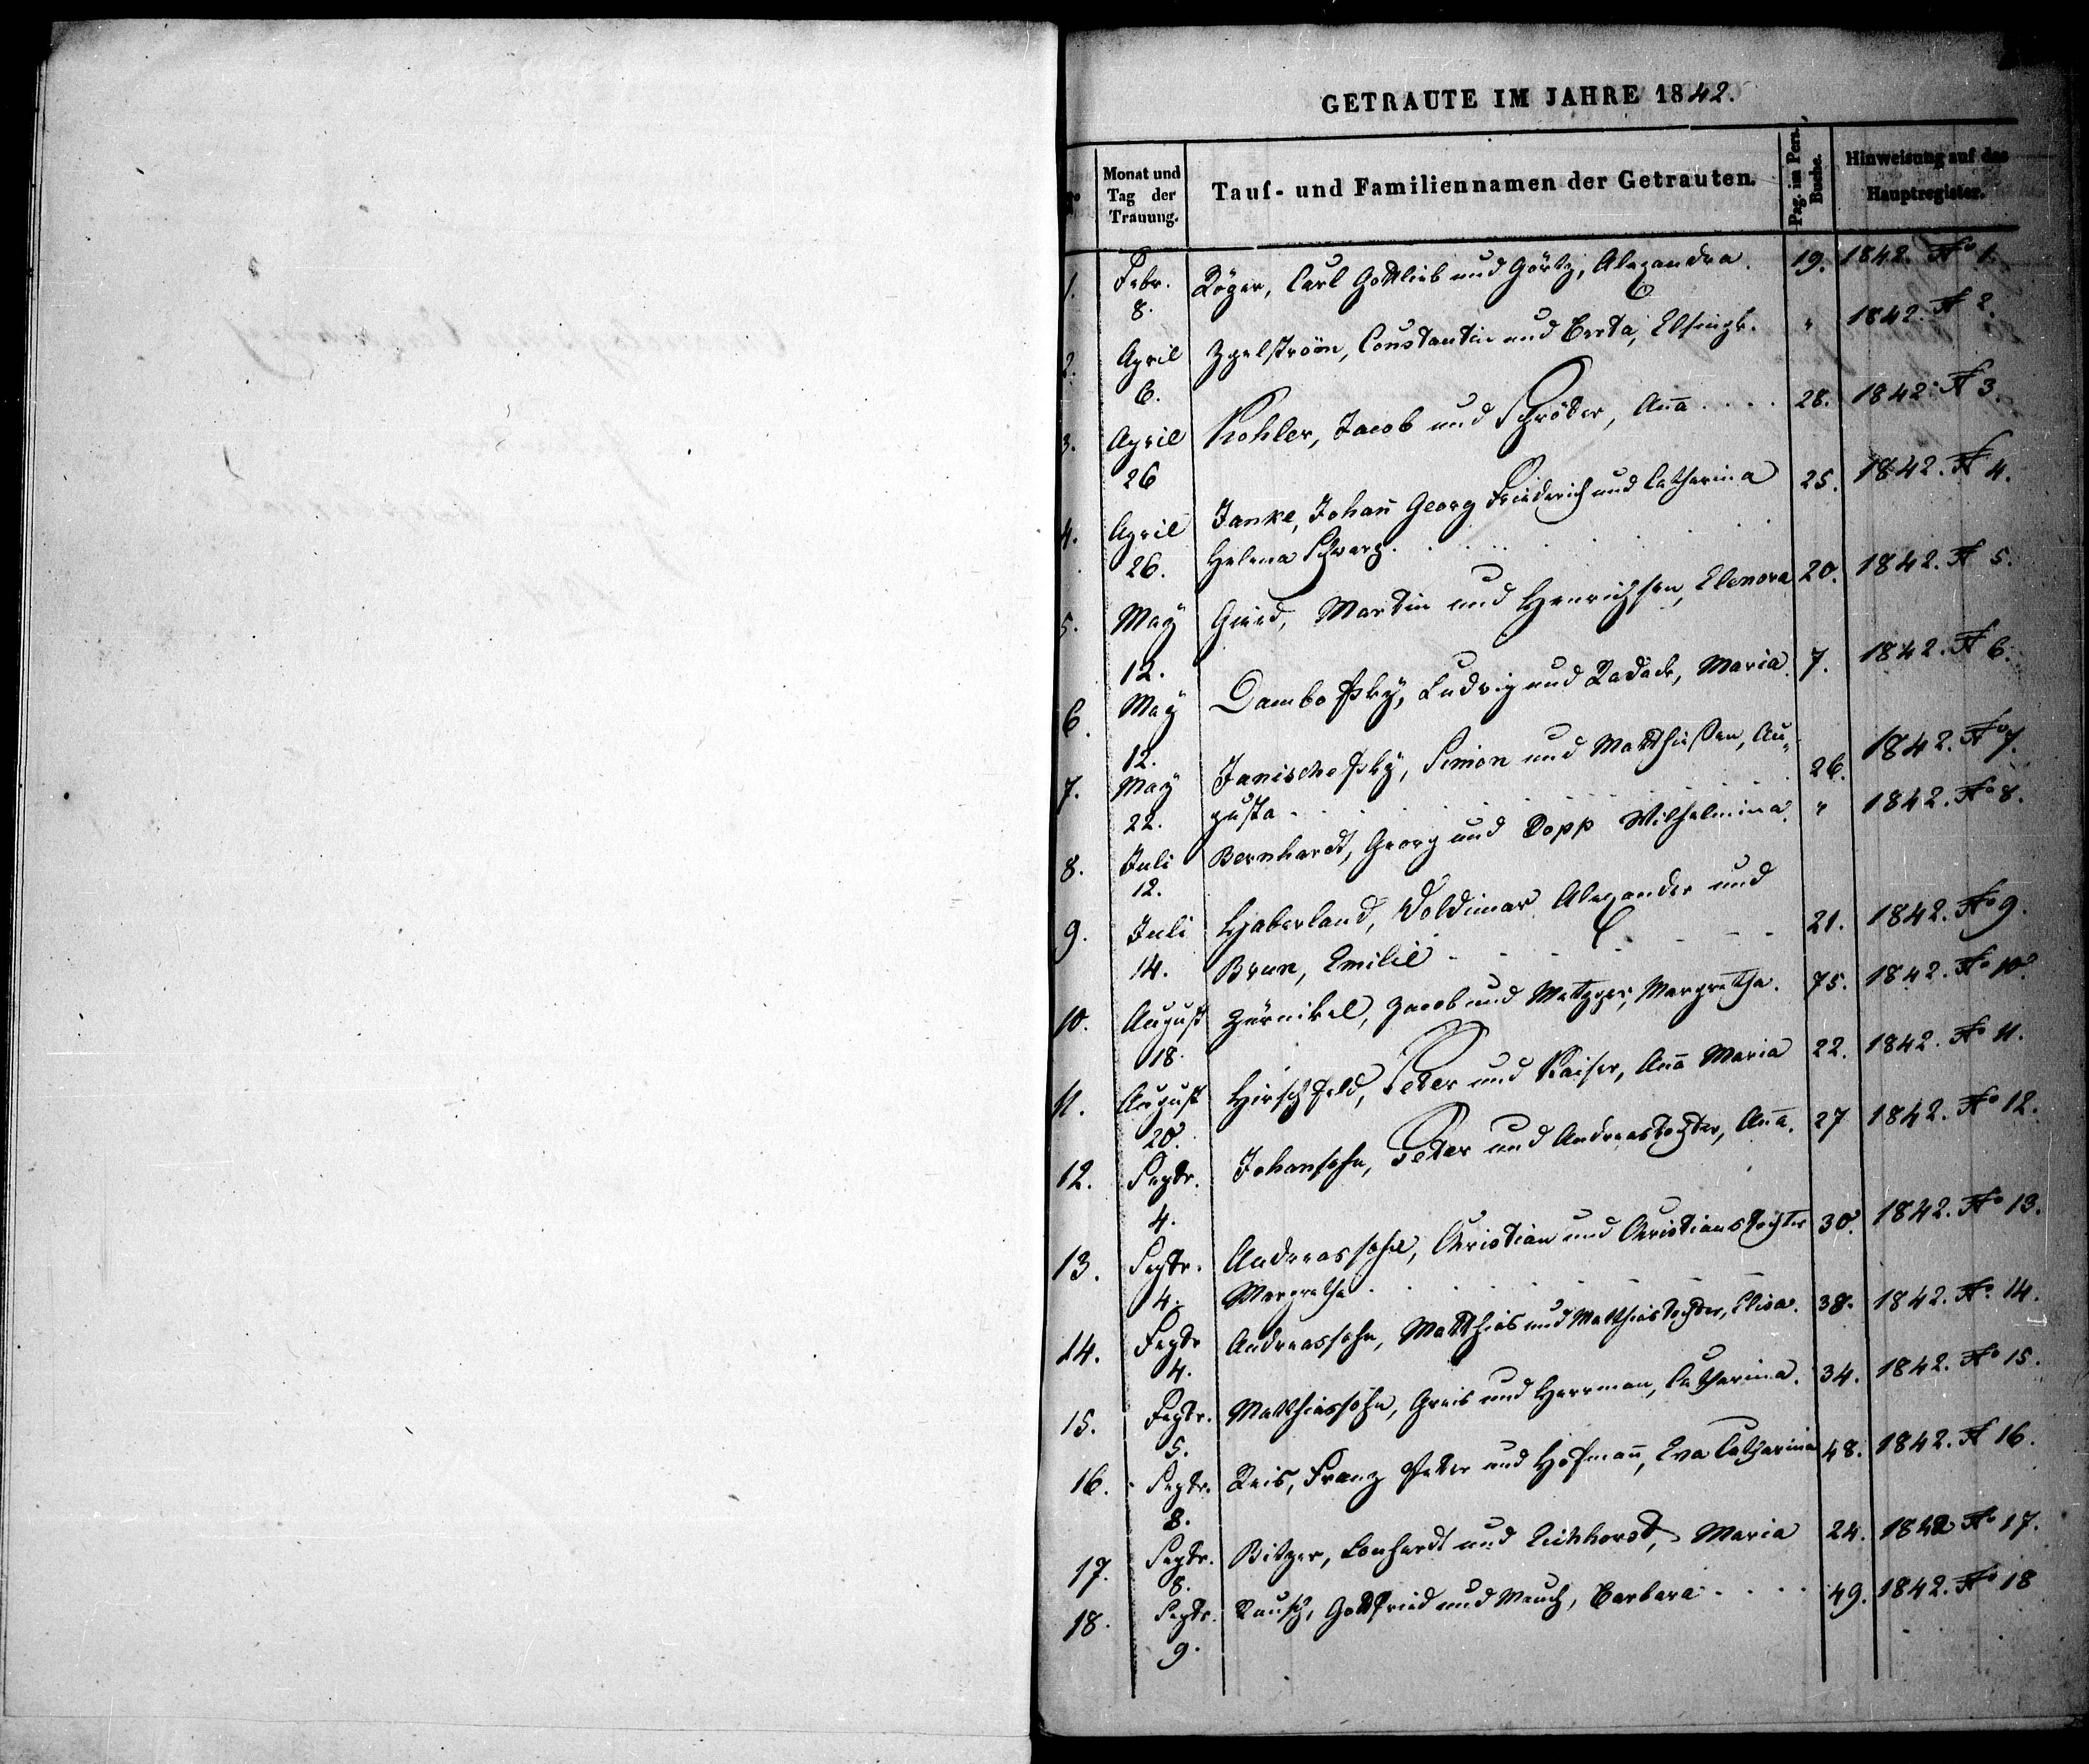 GETRAUTE IM JAHRE 1842.
No
Monat und Tag der Trauung.
Tauf- und Familiennamen der Getrauten.
Pag. im Pers. Buche.
Hinweisung auf das Hauptregister.
1. Febr. 8. Röger, Carl Gottlieb und Görtz, Alexandra. 19. 1842. No 1.
2. April 6. Constantin und Berta, " 1842. No 2.
3. April 26 Kohler, Jacob und Schröder, Anna.... 28. 1842. No 3.
4. April 26. Janke, Johann Georg Friederich und Catharina 25. 1842. No 4.
Helena Schwarz.......
5. May 12. Martin und Henrichsen, Elenora 20. 1842. No 5.
6. May 12. Dambofsky, Ludwig und Radack, Maria. 7. 1842. No 6.
7. May 22. Janischefsky, Simon und Matthießen, Au-
gusta....... 26. 1842. No 7.
8. Juli 12. Bernhardt, Georg und Dopp Wilhelmina. " 1842. No 8.
9. Juli 14. Haberland, Woldimar Alexander und
Brun, Emilie...... 21. 1842. No 9.
10. August 18. Zürnikel, Jacob und Metzger, Margretha. 75. 1842. No 10.
11. August 20. Hirschfeld, Peter und Kaiser, Anna Maria 22. 1842. No 11.
12. Septr. 4. Johansohn, Peter und Andreastochter, Anna. 27 1842. No 12.
13. Septr. 4. Andreassohn, Christian und Christianstochter 30. 1842. No 13.
Margretha.......
14. Septr 4. Andreassohn, Matthias und Matthiastochter, Elisa. 38. 1842. No 14.
15. Septr. 5. Matthiassohn, Greis und Herrman, Catharina. 34. 1842. No 15.
16. Septr. 8. Reis, Franz Peter und Hofmann, Eva Catharina 48. 1842. No 16.
17. Septr. 8. Bitzer, Lenhardt und Eichhorst, Maria 24. 1842 No 17.
18. Septr. 9. Rausch, Gottfried und Mauch, Barbara.... 49. 1842. No 18